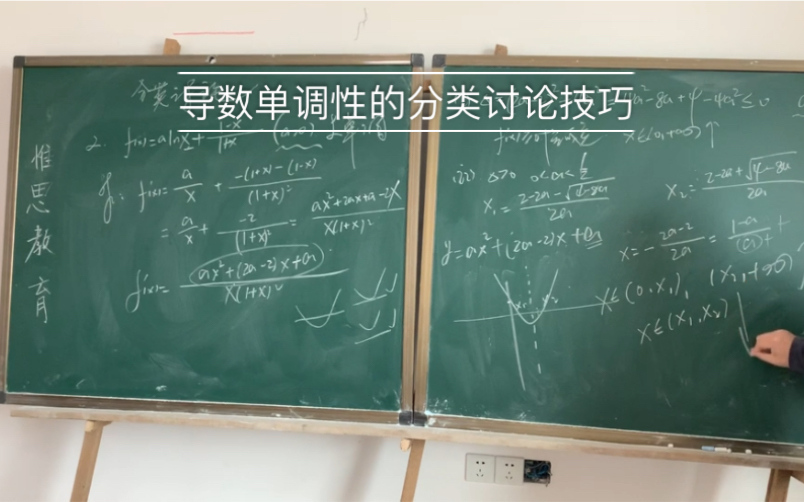 导数单调性的分类讨论技巧
惟思教育
2. f(x)=alnx+
f'(x)= a/x + (-(1+x)-(1-x))/(1+x)²
= a/x + (-2)/(1+x)² = (ax²+2ax+a-2x)/(x(1+x)²)
f'(x)= (ax²+(2a-2)x+a)/(x(1+x)²)
-8a+4-4a²≤0
x∈(0,+∞)↑
△>0 0<a<
x₁= (2-2a-√(4-8a))/(2a)
x₂= (2-2a+√(4-8a))/(2a)
y=ax²+(2a-2)x+a
x=-(2a-2)/(2a) = (1-a)/
x∈(0,x₁), (x₂,+∞)
x∈(x₁,x₂)